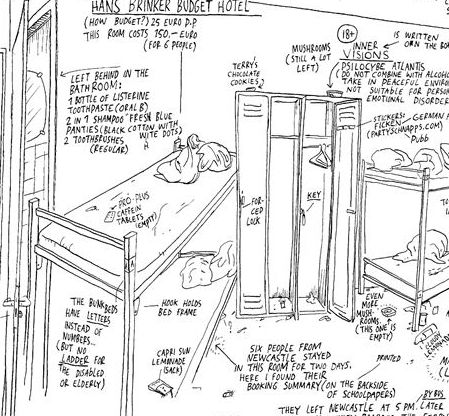 HANS BRINKER BUDGET HOTEL
(HOW BUDGET?) 25 EURO P.P
THIS ROOM COSTS 150,- EURO
(FOR 6 PEOPLE)
LEFT BEHIND IN THE
BATHROOM:
1 BOTTLE OF LISTERINE
TOOTHPASTE (ORAL B)
2 IN 1 SHAMPOO "FRESH BLUE
PANTIES (BLACK COTTON WITH
WITE DOTS)
2 TOOTHBRUSHES
(REGULAR)
TERRY'S
CHOCOLATE
COOKIES
MUSHROOMS
(STILL A LOT
LEFT)
18+
INNER
VISIONS
IS WRITTEN
ON THE
PSILOCYBE ATLANTIS
DO NOT COMBINE WITH ALCOHOL
TAKE IN PEACEFUL
NOT SUITABLE FOR
EMOTIONAL
STICKERS:
FICKEN
(PARTYSCHNAPPS.COM)
GERMAN
PRO-PLUS
CAFFEIN
TABLETS
(EMPTY)
FOR-
CED
LOCK
KEY
THE BUNKBEDS
HAVE LETTERS
INSTEAD OF
NUMBERS..
(BUT NO
LADDER FOR
THE DISABLED
OR ELDERLY)
HOOK HOLDS
BED FRAME
CAPRI SUN
LEMONADE
(SACK)
EVEN
MORE
MUSH-
ROOMS.
(THIS ONE IS
EMPTY)
SIX PEOPLE FROM
NEWCASTLE STAYED
IN THIS ROOM FOR TWO DAYS.
HERE I FOUND THEIR
BOOKING SUMMARY (ON THE BACKSIDE
OF SCHOOLPAPERS)
PRINTED
THEY LEFT NEWCASTLE AT 5 PM. LATER